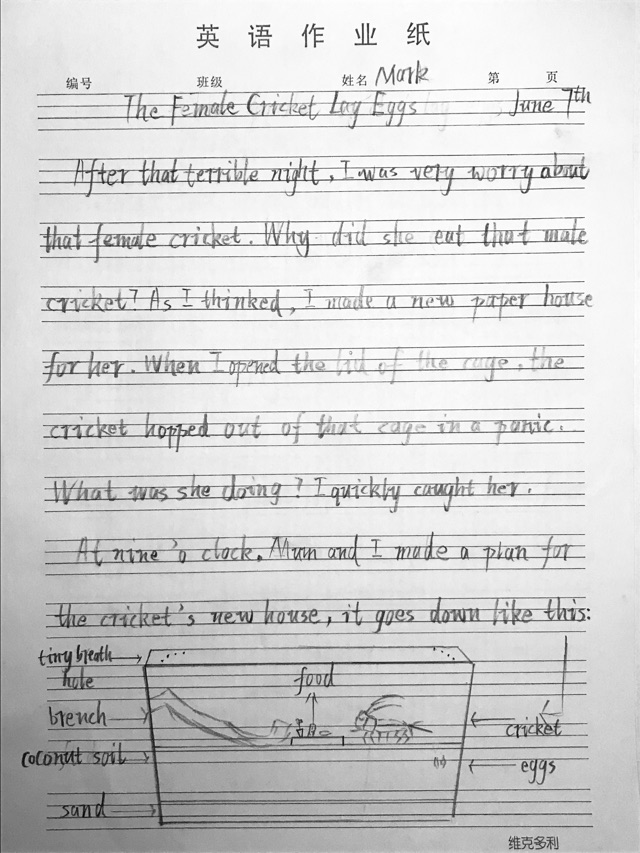 英语作业纸
编号 班级 姓名 Mark 第 页
The Female Cricket Lay Eggs June 7th
After that terrible night, I was very worry about
that female cricket. Why did she eat that male
cricket? As I thinked, I made a new paper house
for her. When I opened the lid of the cage, the
cricket hopped out of that cage in a panic.
What was she doing? I quickly caught her.
At nine 'o clock. Mum and I made a plan for
the cricket's new house, it goes down like this:
tiny breath
hole
food
brench
cricket
coconut soil
eggs
sand
维克多利